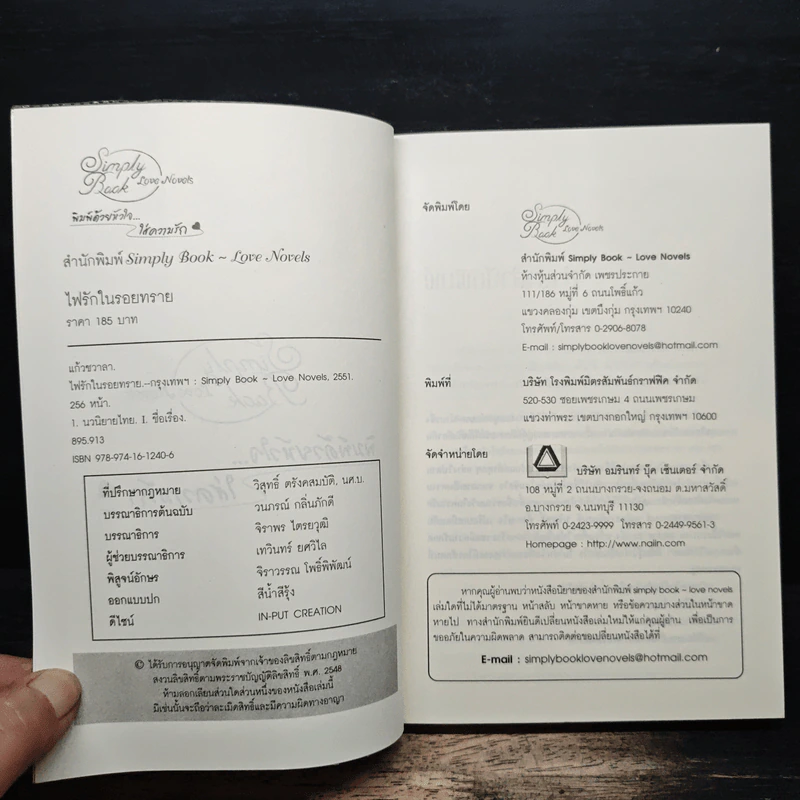 Simply
Book Love Novels
พิมพ์ด้วยหัวใจ...
ใส่ความรัก
สำนักพิมพ์ Simply Book ~ Love Novels
ไฟรักในรอยทราย
ราคา 185 บาท
แก้วชวาลา.
ไฟรักในรอยทราย.--กรุงเทพฯ : Simply Book - Love Novels, 2551.
256 หน้า.
1. นวนิยายไทย. I. ชื่อเรื่อง.
895.913
ISBN 978-974-16-1240-6
ที่ปรึกษากฎหมาย วิสุทธิ์ ตรังคสมบัติ, นศ.บ.
บรรณาธิการต้นฉบับ วนภรณ์ กลิ่นภักดี
บรรณาธิการ จิราพร ไตรยวุฒิ
ผู้ช่วยบรรณาธิการ เทวินทร์ ยศวิไล
พิสูจน์อักษร จิราวรรณ โพธิ์พิพัฒน์
ออกแบบปก สีน้ำสีรุ้ง
ดีไซน์ IN-PUT CREATION
© ได้รับการอนุญาตจัดพิมพ์จากเจ้าของลิขสิทธิ์ตามกฎหมาย
สงวนลิขสิทธิ์ตามพระราชบัญญัติลิขสิทธิ์ พ.ศ. 2548
ห้ามลอกเลียนส่วนใดส่วนหนึ่งของหนังสือเล่มนี้
มิเช่นนั้นจะถือว่าละเมิดสิทธิ์และมีความผิดทางอาญา
จัดพิมพ์โดย
Simply
Book Love Novels
สำนักพิมพ์ Simply Book - Love Novels
ห้างหุ้นส่วนจำกัด เพชรประกาย
111/186 หมู่ที่ 6 ถนนโพธิ์แก้ว
แขวงคลองกุ่ม เขตบึงกุ่ม กรุงเทพฯ 10240
โทรศัพท์/โทรสาร 0-2906-8078
E-mail : simplybooklovenovels@hotmail.com
พิมพ์ที่ บริษัท โรงพิมพ์มิตรสัมพันธ์กราฟฟิค จำกัด
520-530 ซอยเพชรเกษม 4 ถนนเพชรเกษม
แขวงท่าพระ เขตบางกอกใหญ่ กรุงเทพฯ 10600
จัดจำหน่ายโดย บริษัท อมรินทร์ บุ๊ค เซ็นเตอร์ จำกัด
108 หมู่ที่ 2 ถนนบางกรวย-จงถนอม ต.มหาสวัสดิ์
อ.บางกรวย จ.นนทบุรี 11130
โทรศัพท์ 0-2423-9999 โทรสาร 0-2449-9561-3
Homepage : http://www.naiin.com
หากคุณผู้อ่านพบว่าหนังสือนิยายของสำนักพิมพ์ simply book - love novels
เล่มใดที่ไม่ได้มาตรฐาน หน้าสลับ หน้าขาดหาย หรือข้อความบางส่วนในหน้าขาด
หายไป ทางสำนักพิมพ์ยินดีเปลี่ยนหนังสือเล่มใหม่ให้แก่คุณผู้อ่าน เพื่อเป็นการ
ขออภัยในความผิดพลาด สามารถติดต่อขอเปลี่ยนหนังสือได้ที่
E-mail : simplybooklovenovels@hotmail.com